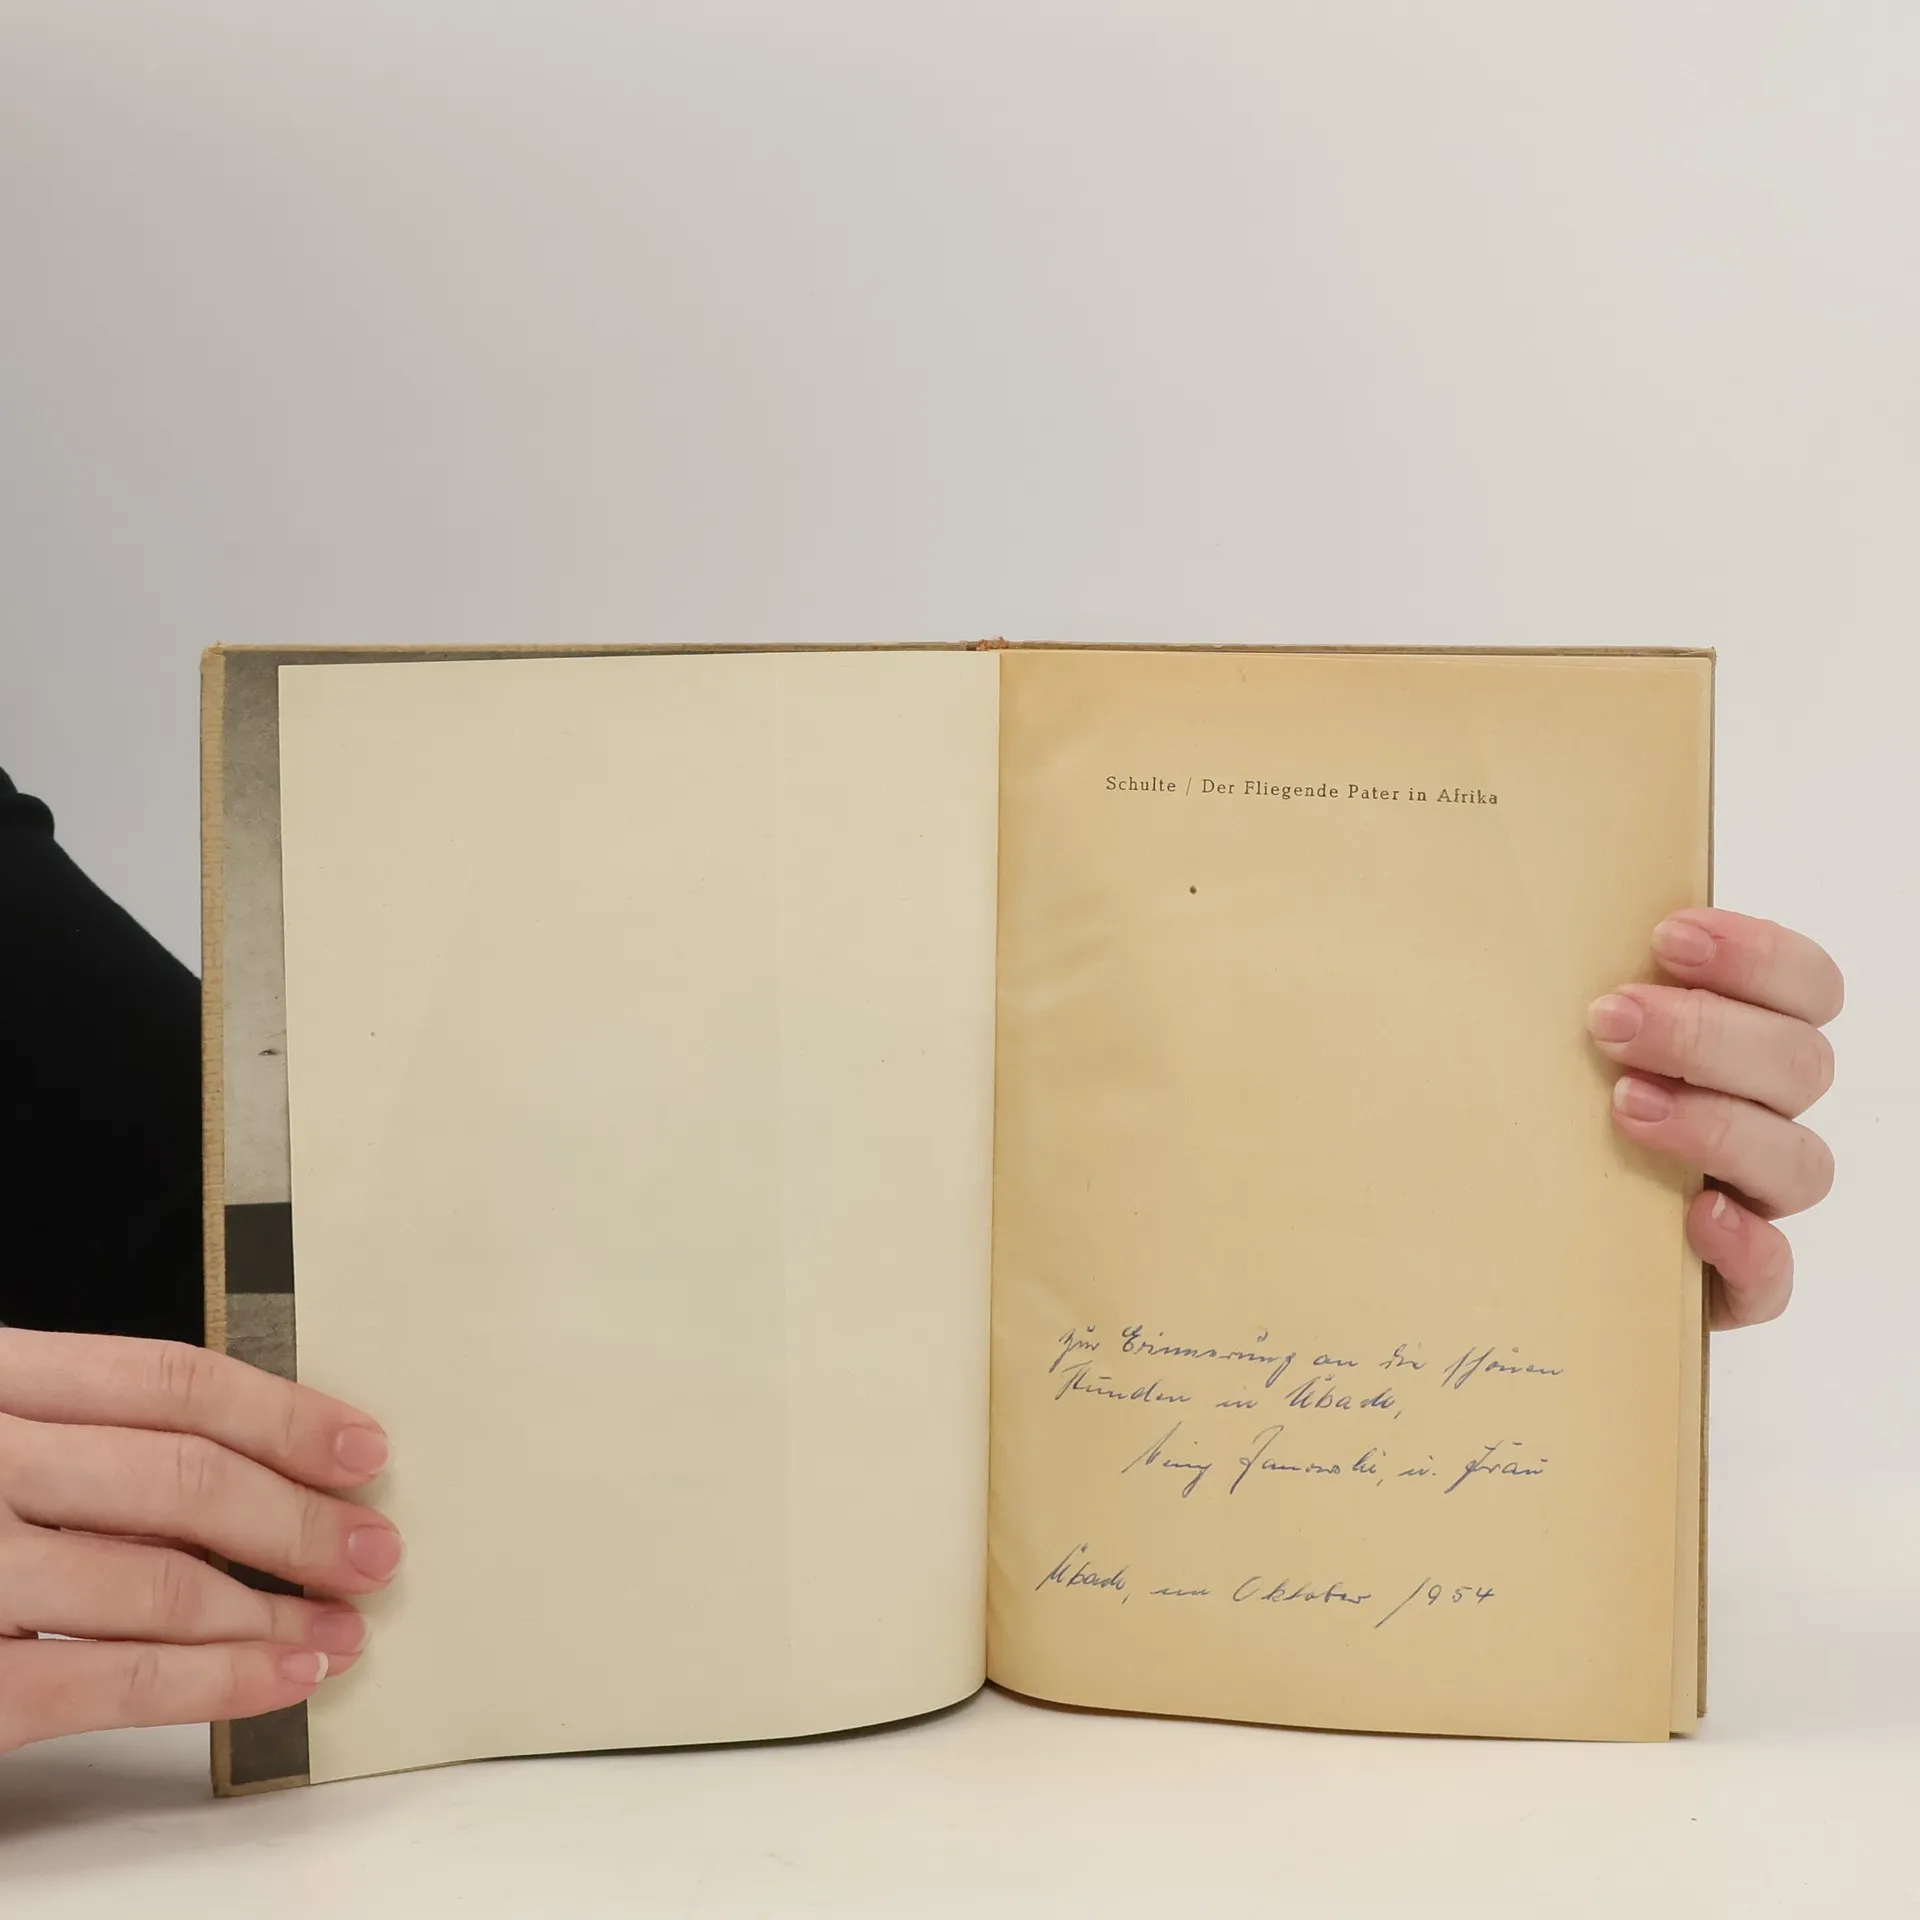 Schulte / Der Fliegende Pater in Afrika
Zur Erinnerung an die schönen
Stunden in Übach,
Janowski, u. Frau
Übach, im Oktober 1954